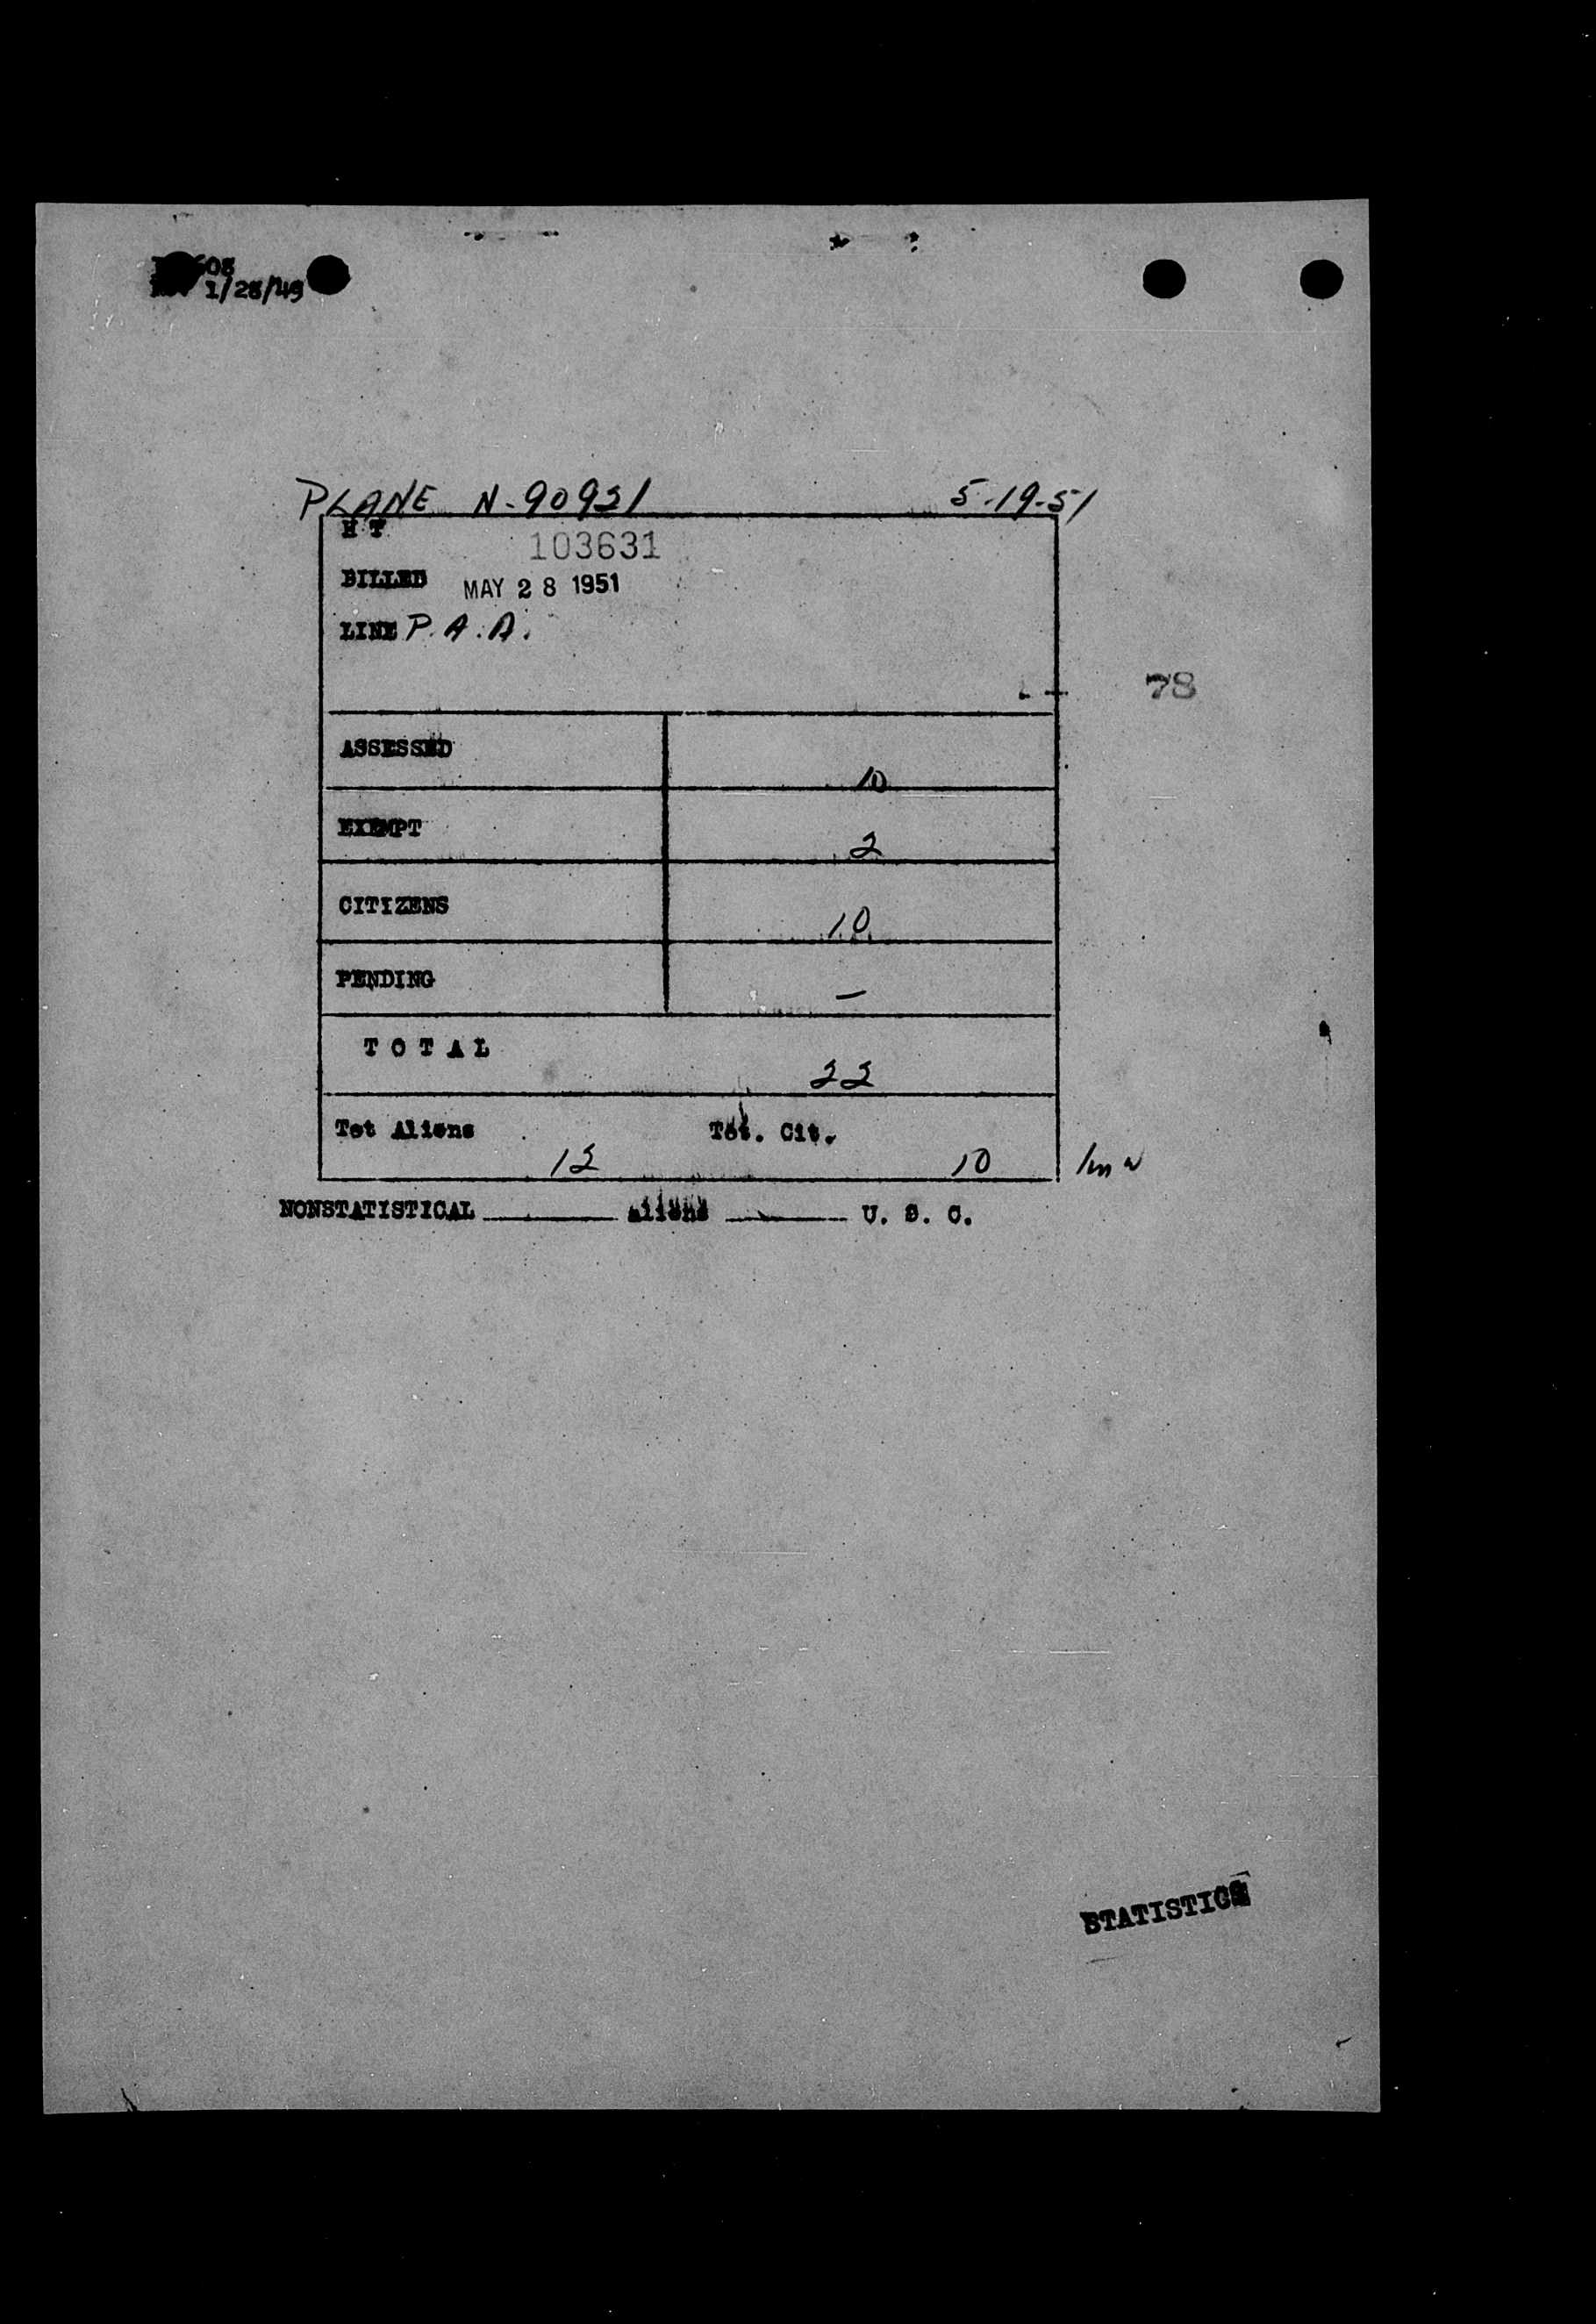 1/28/49
PLANE N-90921 5-19-51
H T
103631
BILLED MAY 28 1951
LINE P.A.A.
78
ASSESSED 10
EXEMPT 2
CITIZENS 10
PENDING —
TOTAL 22
Tot Aliens 12 Tot. Cit. 10
NONSTATISTICAL ______ Aliens ______ U. S. C.
STATISTICS